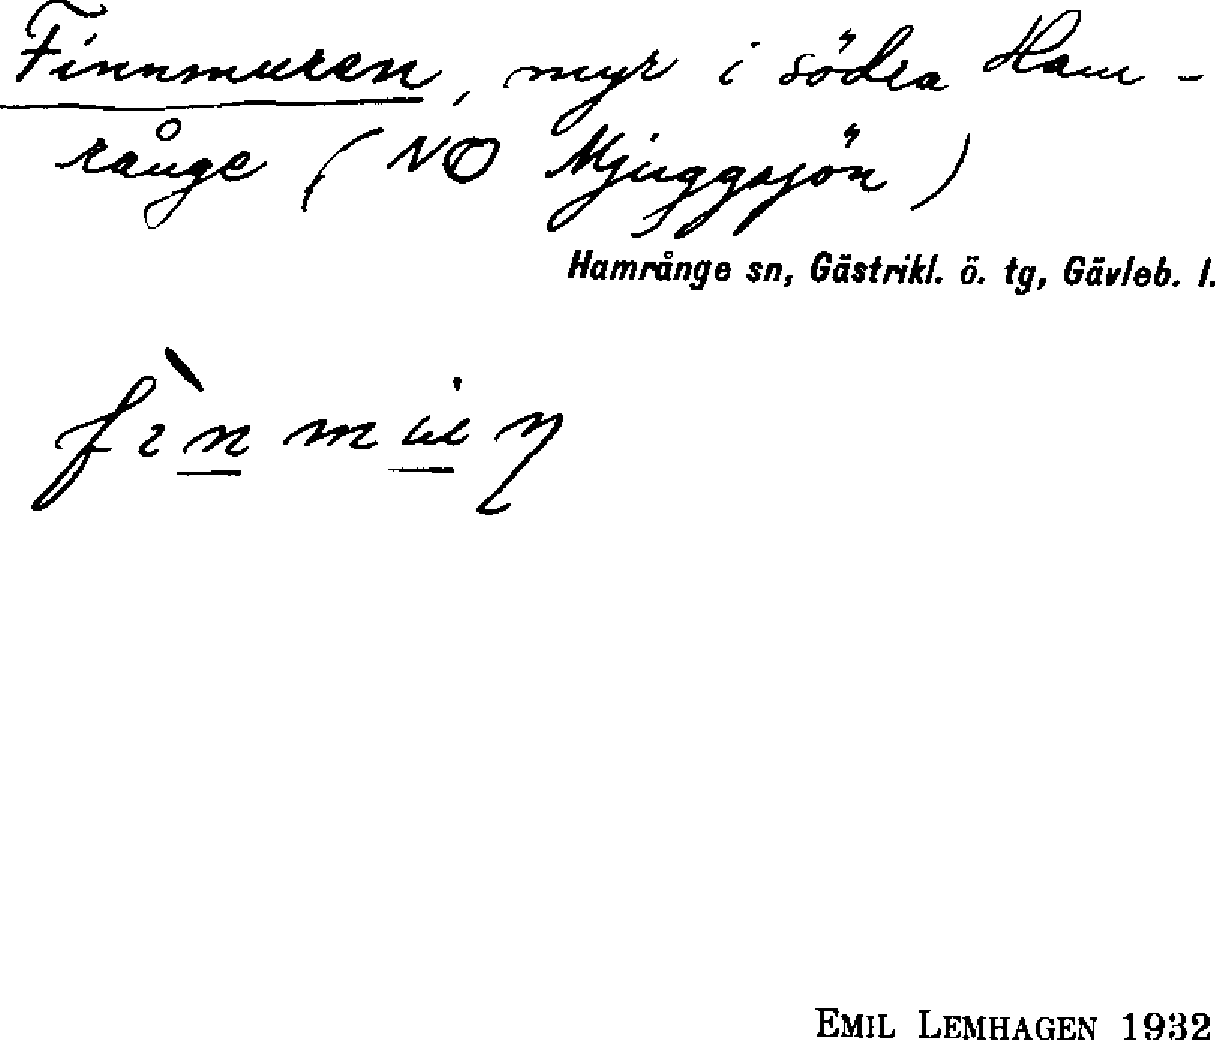 Finnmuren, myr i södra Ham-
rånge (NO Mjuggsjön)
Hamrånge sn, Gästrikl. ö. tg, Gävleb. l.
EMIL LEMHAGEN 1932